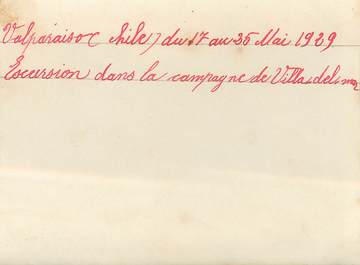 Valparaiso (Chile) du 17 au 25 Mai 1929
Escursion dans la campagne de Villa del mar